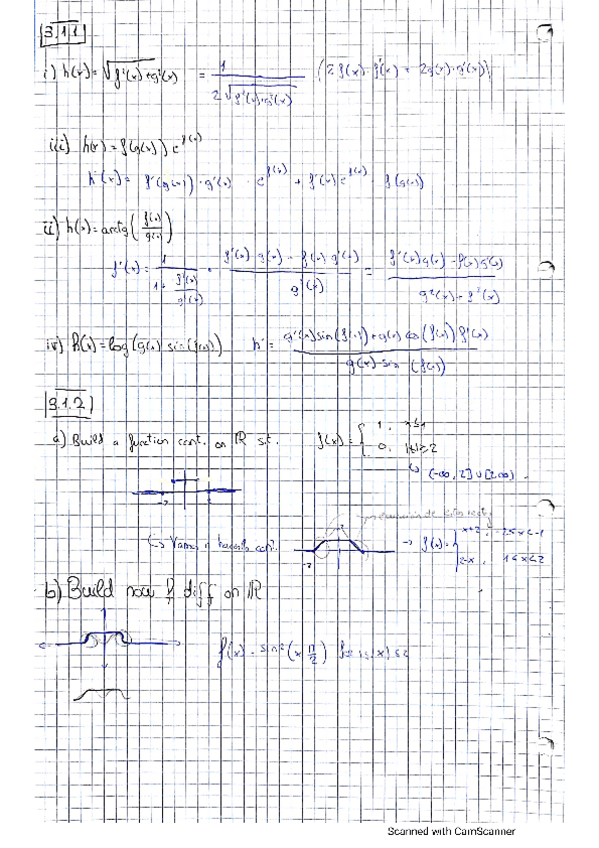 3.1.1
i) h(x) = √f²(x)+g²(x) = 1 / 2√f²(x)+g²(x) (2f(x)·f'(x) + 2g(x)·g'(x))
iii) h(x) = f(g(x)) e^f(x)
h'(x) = f'(g(x))·g'(x)·e^f(x) + f'(x) e^f(x)·f(g(x))
ii) h(x) = arctg(f(x)/g(x))
f'(x) = 1 / 1+ f²(x)/g²(x) · f'(x) g(x) - f(x) g'(x) / g²(x) = f'(x)g(x) - f(x)g'(x) / g²(x)+f²(x)
iv) h(x) = log(g(x) sin(f(x))) h' = g'(x)sin(f(x))+g(x) cos(f(x)) f'(x) / g(x)·sin(f(x))
3.1.2
a) Build a function cont. on ℝ st. f(x) = { 1, 0, |x|≥2
↳ (-∞, 2] ∪ [2∞)
↳ Vamos a hacerla cont. → f(x) = { x+2, -2≤x<-1
2-x, 1<x≤2
-2
b) Build now f diff on ℝ
f(x) = sin²(x π/2) for 1≤|x|≤2
Scanned with CamScanner